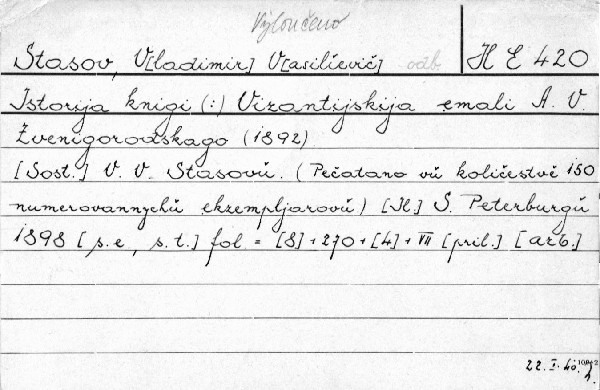 Vyloučeno
Stasov, V[ladimir] V[asilíevič] odb. H E 420
Istorija knigi (:) Vizantijskija emali A. V.
Zvenigorodskago (1892)
[Sost.] V. V. Stasovŭ. (Pečatano vŭ količestvě 150
numerovannychŭ ekzempljarovŭ) [Il.] S. Peterburgŭ
1898 [s.e., s.t.] fol = [8]+270+[4]+VII [pril.] [arb.]
22. I. 40.